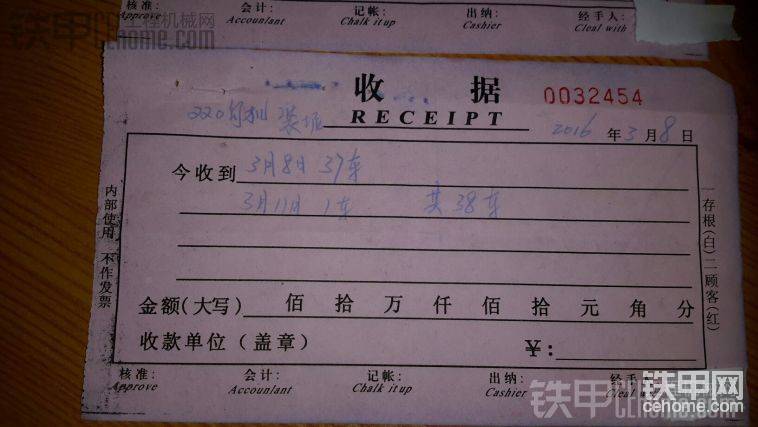 核准： 会计： 记帐： 出纳： 经手人：
Approve Accountant Chalk it up Cashier Cleal with
铁甲工程机械网
cehome.com
收 据 0032454
RECEIPT
220勾机 装 2016 年 3 月 8 日
今收到 3月8日 37车
3月11日 1车 共38车
内部使用 不作发票
存根(白) 二顾客(红)
金额(大写) 佰 拾 万 仟 佰 拾 元 角 分
收款单位(盖章) ¥:
核准： 会计： 记帐： 出纳： 经手
Approve Accountant Chalk it up Cashier Cleal with
铁甲网
cehome.com